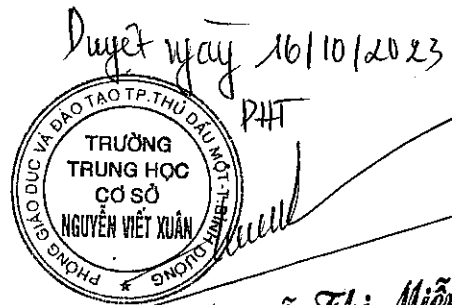 Duyệt ngày 16/10/2023
PHT
PHÒNG GIÁO DỤC VÀ ĐÀO TẠO TP.THỦ DẦU MỘT-T.BÌNH DƯƠNG
TRƯỜNG
TRUNG HỌC
CƠ SỞ
NGUYỄN VIẾT XUÂN
*
Thị Miễn